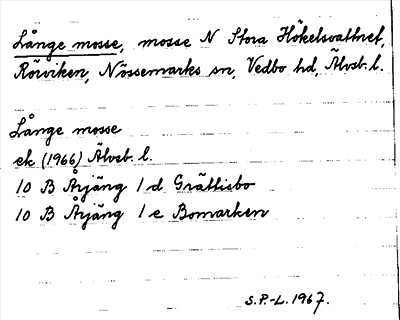 Långe mosse, mosse N Stora Hökelsvattnet,
Rörviken, Nössemarks sn, Vedbo hd, Älvsb. l.
Långe mosse
ek (1966) Älvsb. l.
10 B Årjäng 1 d Grättisbo
10 B Årjäng 1 e Bomarken
S.P.-L. 1967.